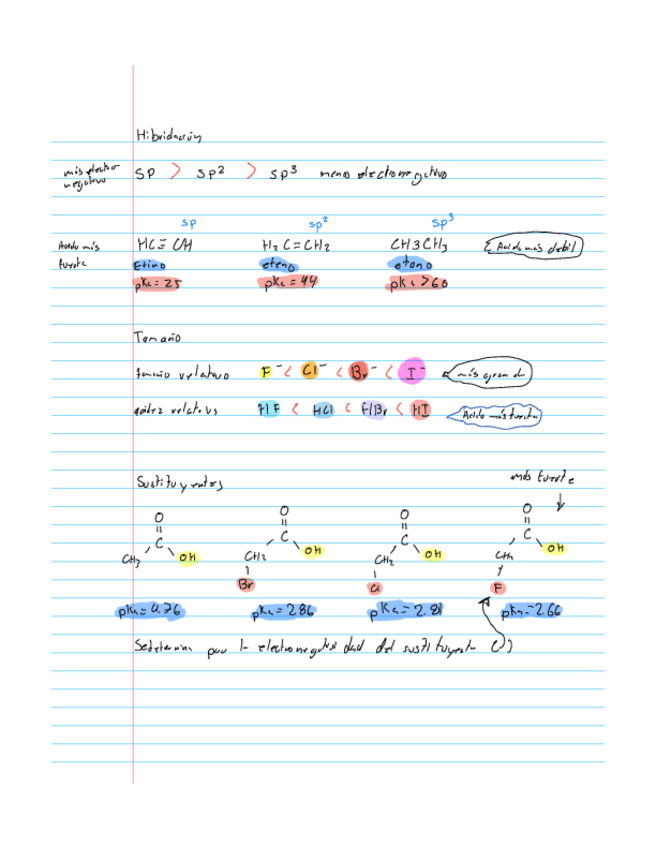 Hibridación
más electro negativo sp > sp² > sp³ menos electronegativo
sp sp² sp³
Acido más fuerte HC≡CH H₂C=CH₂ CH3CH₃ Acido más debil
Etino eteno etano
pKa=25 pKa=44 pKa>60
Tamaño
tamaño relativo F⁻ < Cl⁻ < Br⁻ < I⁻ más grande
acidez relativas HF < HCl < HBr < HI Acido más fuerte
Sustituyentes más fuerte
O O O O
C C C C
CH₃ OH CH2 OH CH₂ OH CH₂ OH
Br Cl F
pKa=4.76 pKa=2.86 pKa=2.81 pKa=2.66
Se determina por la electronegatividad del sustituyente